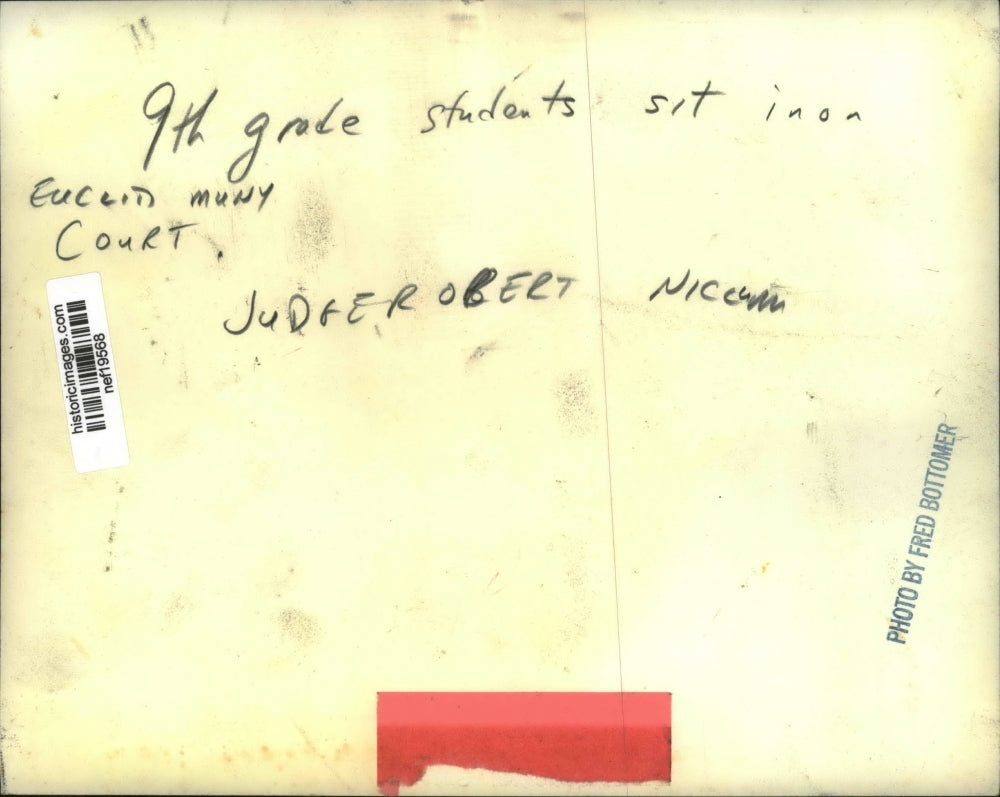 9th grade students sit in on
EUCLID MUNY
COURT.
JUDGE ROBERT NICCUM
historicimages.com
nef19568
PHOTO BY FRED BOTTOMER